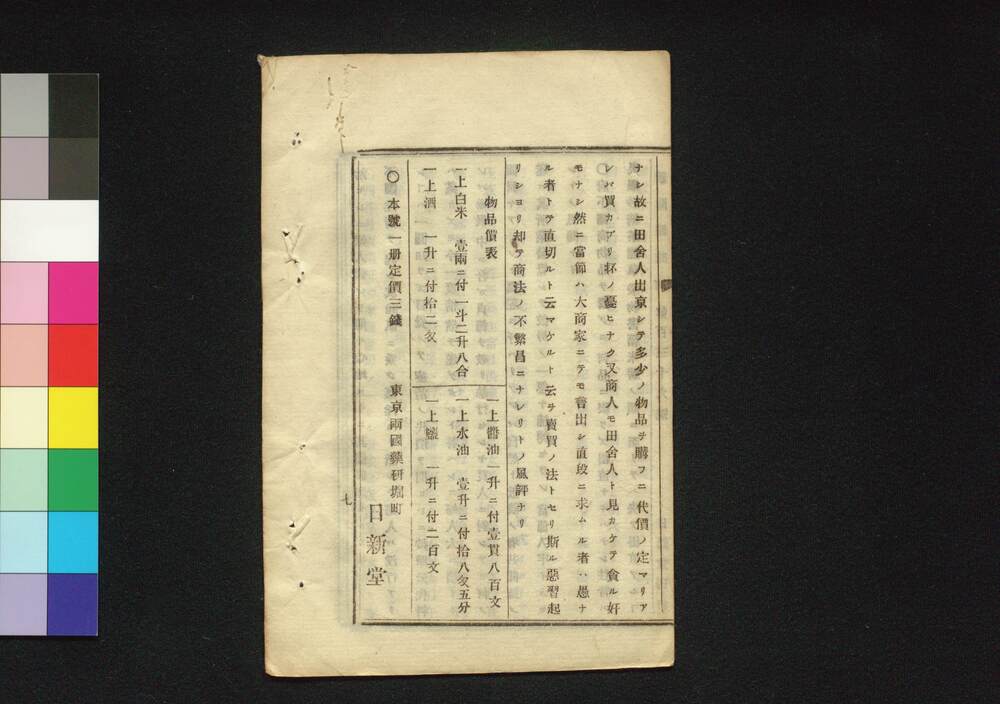 ナシ故ニ田舍人出京シテ多少ノ物品ヲ購フニ代價ノ定マリア
レバ買カブリ杯ノ憂ヒナク又商人モ田舍人ト見カケテ貪ル奸
モナシ然ニ當節ハ大商家ニテモ書出シ直段ニ求ムル者ハ愚ナ
ル者トテ直切ルト云マケルト云ヲ賣買ノ法トセリ斯ル惡習起
リシヨリ却テ商法ノ不繁昌ニナレリトノ風評ナリ
物品價表
一上醬油 一升ニ付壹貫八百文
一上白米 壹兩ニ付一斗二升八合
一上水油 壹升ニ付拾八匁五分
一上酒 一升ニ付拾二匁
一上鹽 一升ニ付二百文
〇本號一册定價三錢
東京兩國藥硏堀町
日新堂
七